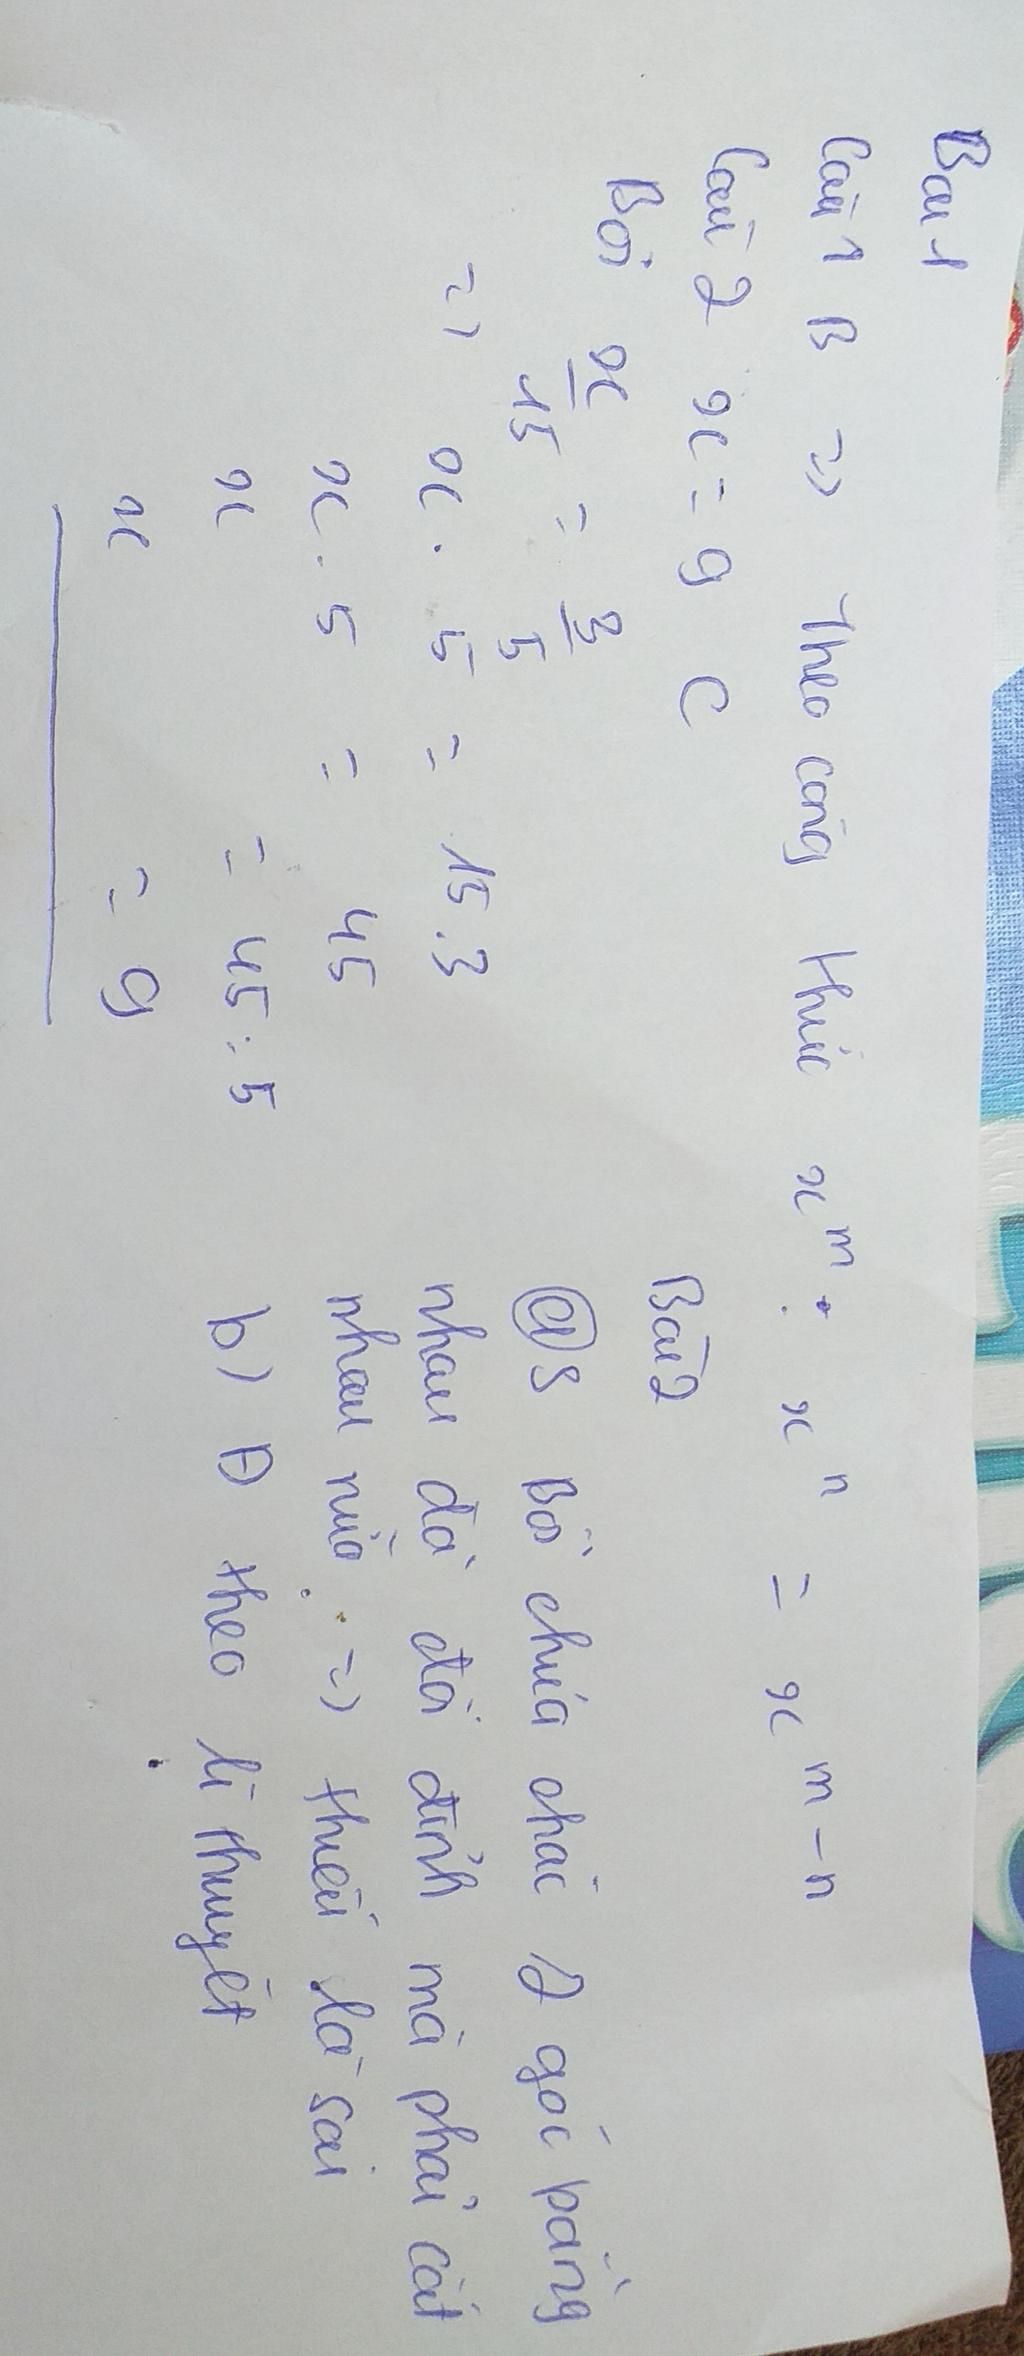 Bài 1
Câu 1 B => Theo công thức x^m : x^n = x^m-n
Câu 2 x = 9 C
Bởi x/15 = 3/5
=> x . 5 = 15 . 3
x . 5 = 45
x = 45 : 5
x = 9
Bài 2
a) S Bởi chưa chắc 2 góc bằng
nhau đã đối đỉnh mà phải cắt
nhau nữa. => thiếu là sai
b) Đ theo lí thuyết